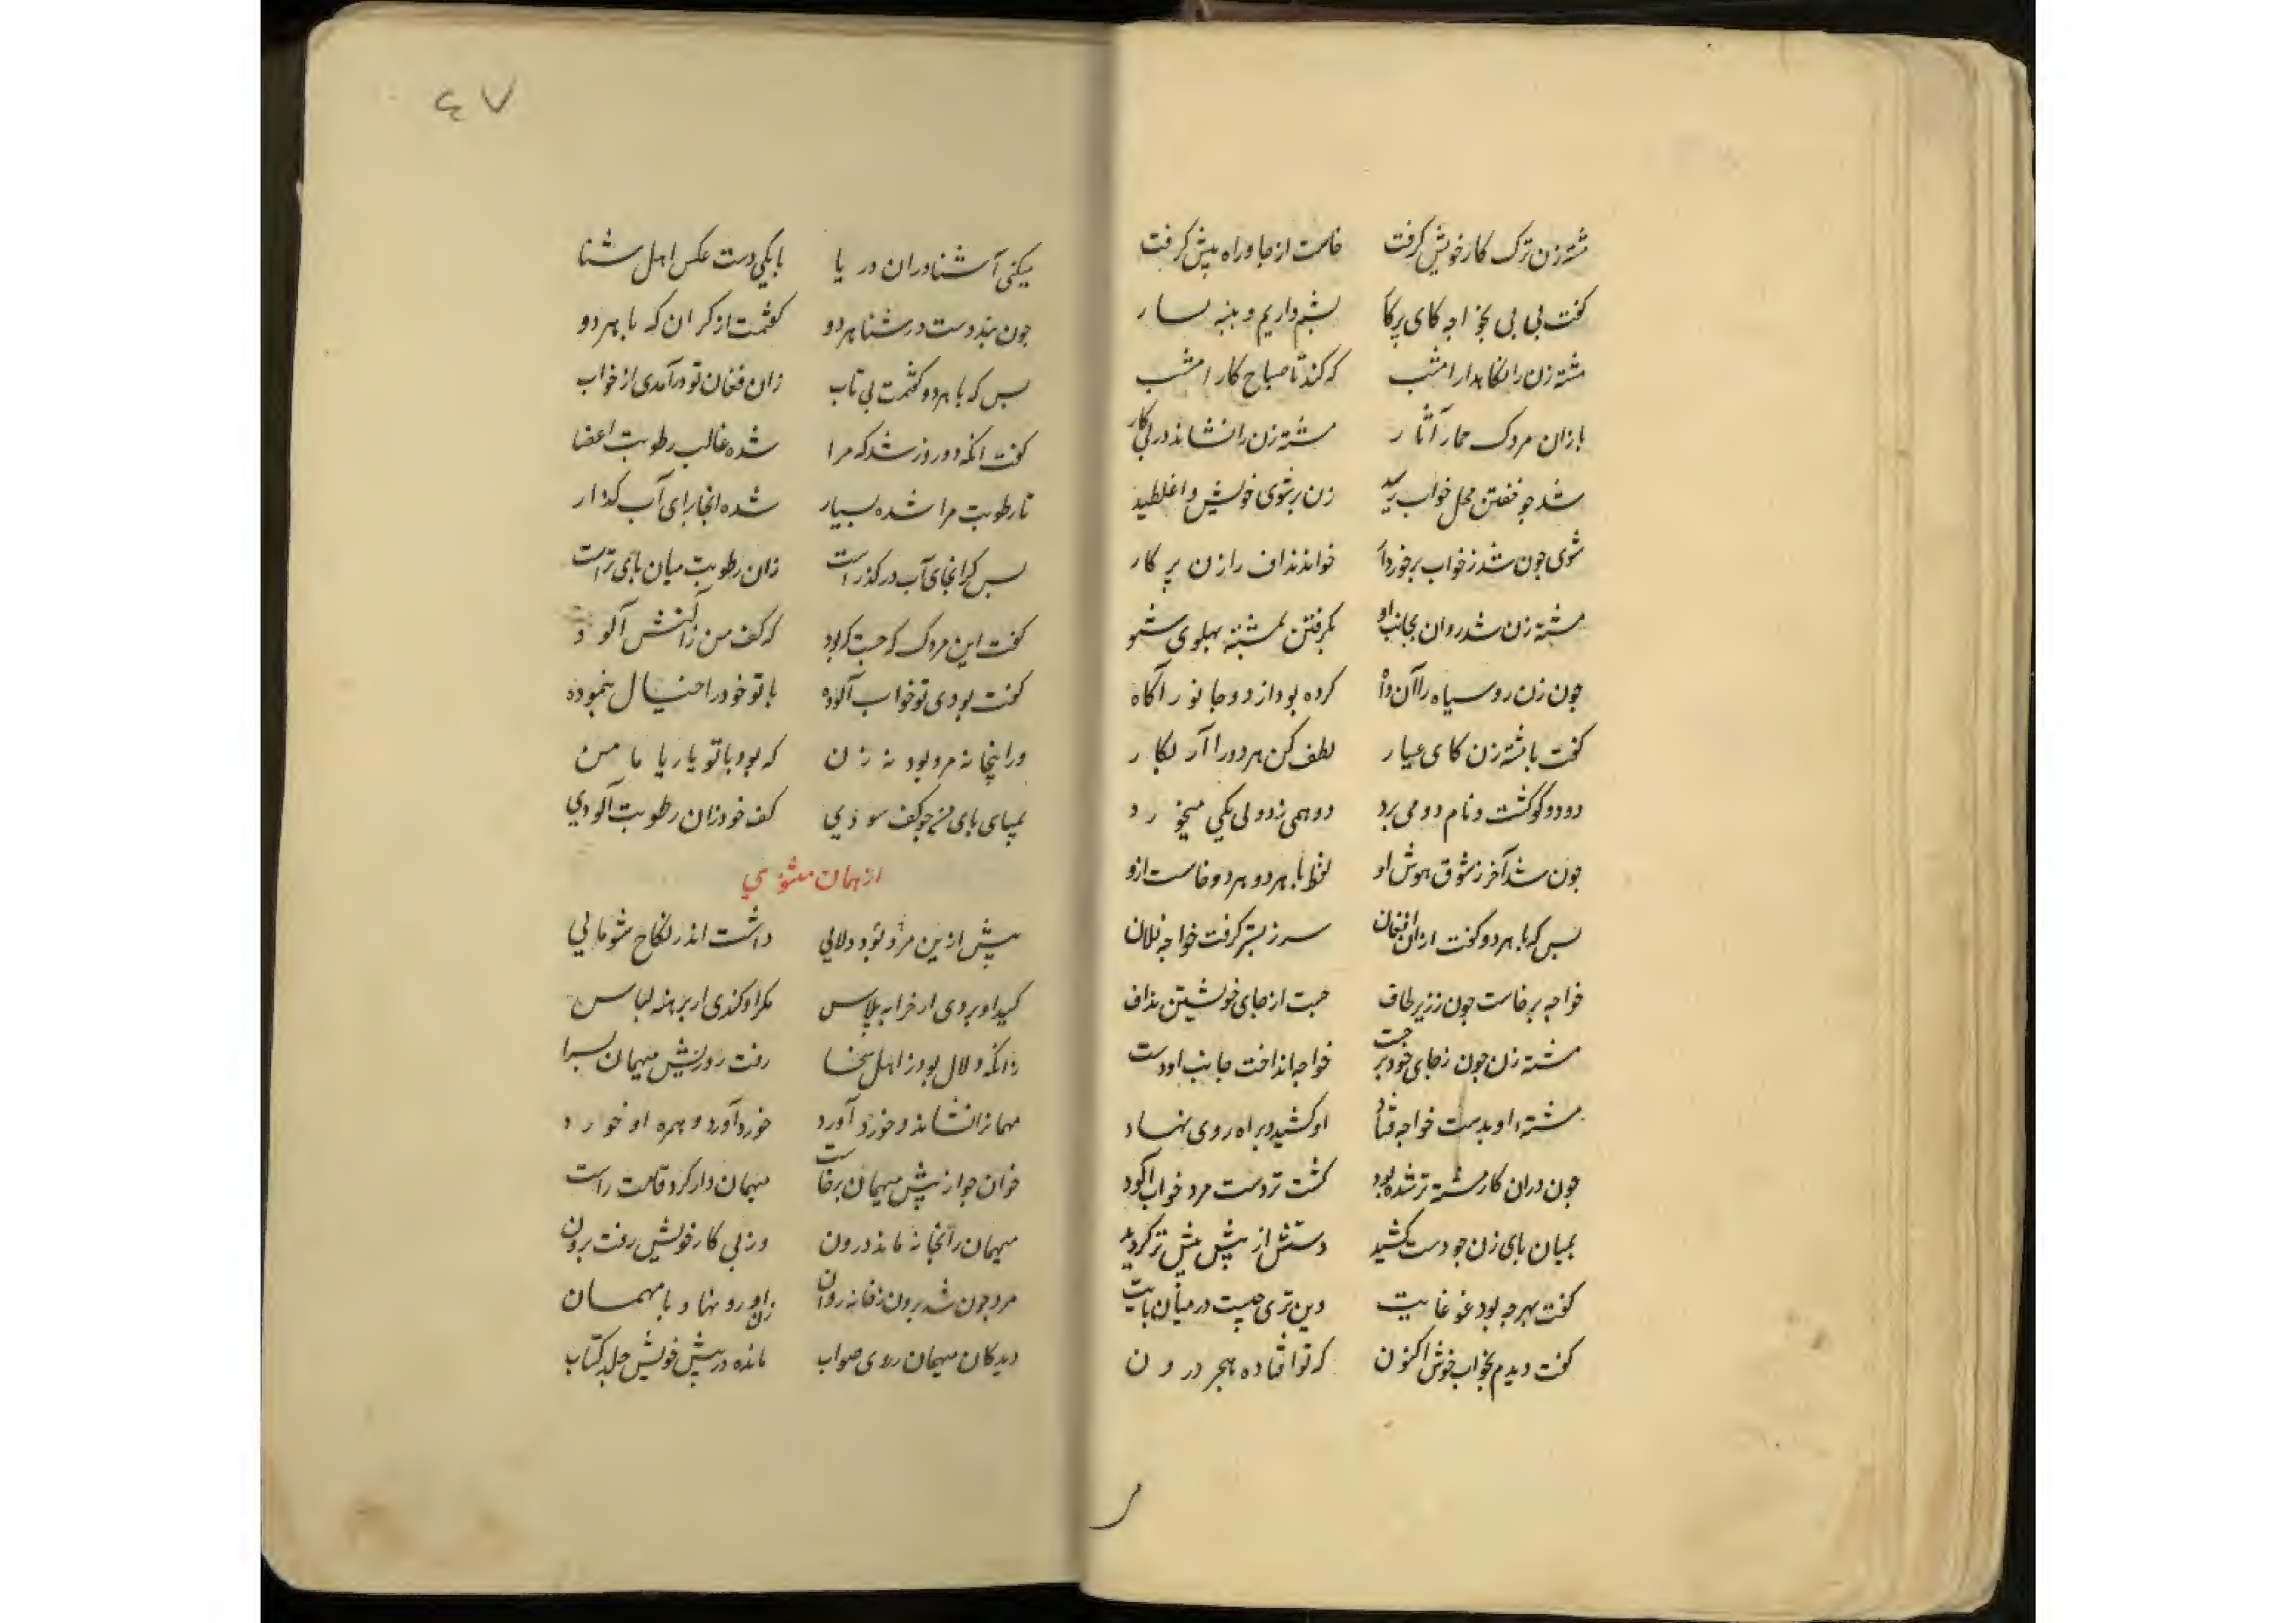 مشته زن ترک کار خویش گرفت خاست از جا و راه پیش گرفت
گفت بی بی بخواجه کای پرکار پشم داریم و پنبه بسیار
مشته زن را نکاهدار امشب که کند تا صباح کار امشب
باز آن مردک حمار آثار مشته زن را نشاند در پی کار
شد چو خفتن محل خواب رسید زن بر شوی خویش واغلطید
شوی چون شد ز خواب برخوردار خواند نداف را زن پر کار
مشته زن شد روان بجانب او بگرفتن نشسته پهلوی شو
چون زن روسیاه را آن داه کرده بود از دو جانور آکاه
گفت با مشته زن کای عیار لطف کن هر دو را آر بکار
دو دو گوگشت و نام دو می برد دو همی زد ولی یکی میخورد
چون شد آخر ز شوق هوش او لفظ با هر دو هر دو خاست ازو
بس که با هر دو گفت از ان افغان سر ز بستر گرفت خواجه فلان
خواجه برخاست چون ز زیر لحاف جست از جای خویشتن نداف
مشته زن چون ز جای خود برجست خواجه انداخت جانب او دست
مشته او بدست خواجه فتاد او کشید و براه روی نهاد
چون در ان کار مشته تر شده بود گشت تر دست مرد خواب آلود
بمیان پای زن چو دست کشید دستش از پیش بیش تر گردید
گفت بهر چه بود غوغایت وین تری چیست در میان پایت
گفت دیدم بخواب خوش اکنون که تو افتاده ببحر درون
۴۷
میکنی آشناوران دریا با یکی دست عکس اهل شنا
چون نبد دست در شنا هر دو گفتمت از کران که با هر دو
بس که با هر دو گفتمت بی تاب زان فغان تو درآمدی از خواب
گفت انکه دو روز شد که مرا شده غالب رطوبت اعضا
تا رطوبت مرا شده بسیار شده انجا برای آب گذار
بس کز انجای آب در گذر است زان رطوبت میان پای تر است
گفت این مردک که جست که بود که کف من ز آلتش آلود
گفت بودی تو خواب آلوده با تو خود را خیال بنموده
ور اینجا نه مرد بود نه زن که بود با تو یار یا با من
بمیای پای من چو کف سودی کف خود زان رطوبت آلودی
از همان مثنوی
پیش ازین مرد بود دلالی داشت اندر نکاح شوخالی
کید او بردی از خرابه پلاس مکر او کندی از برهنه لباس
زانکه دلال بود ز اهل سخا رفت روزیش میهمان بسرا
مهمانرا نشاند و خورد آورد خورد آورد و همره او خورد
خوان چو از پیش میهمان برخاست میهمان وار کرد قامت راست
میهمان را بخانه ماند درون وز پی کار خویش رفت برون
مرد چون شد برون ز خانه روان زن او رو نهاد با مهمان
دید کان میهمان روی صواب مانده در پیش خویش جلد کتاب